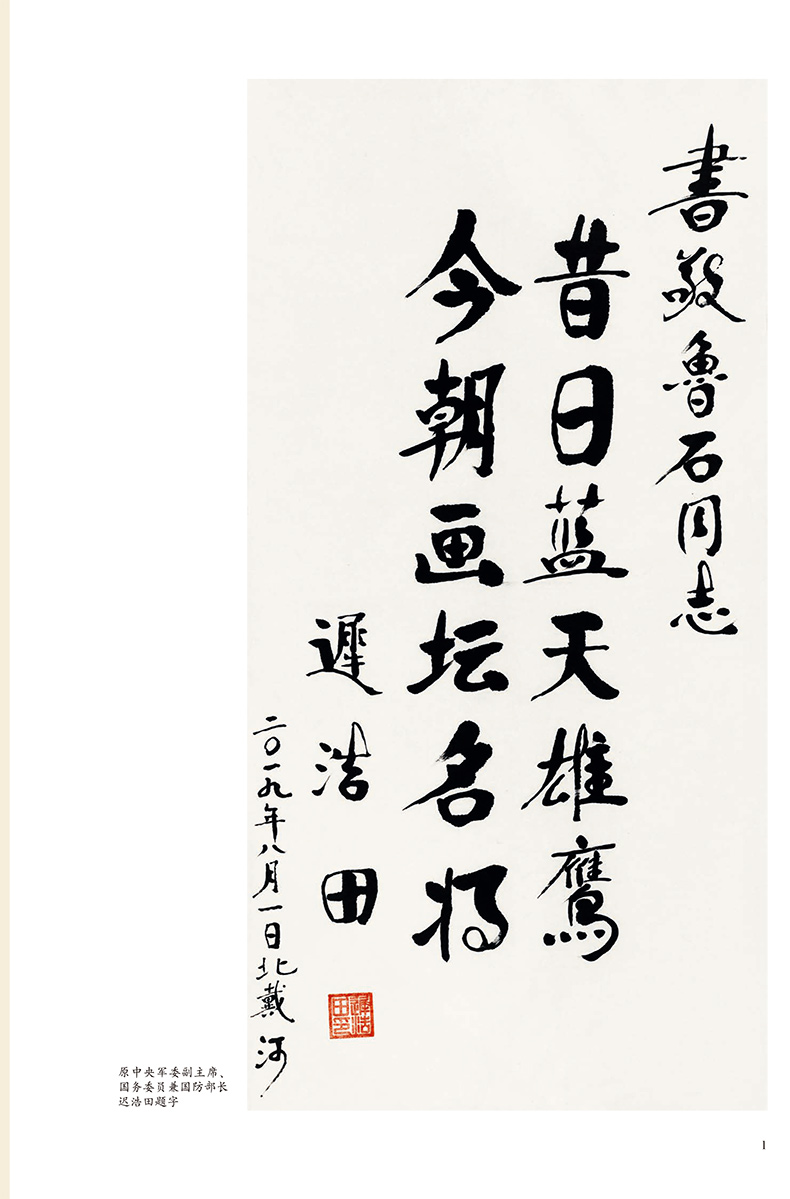 書敬魯石同志
昔日蓝天雄鷹
今朝画坛名将
遲浩田
二〇一九年八月一日北戴河
遲浩田印
原中央军委副主席、
国务委员兼国防部长
迟浩田题字
1